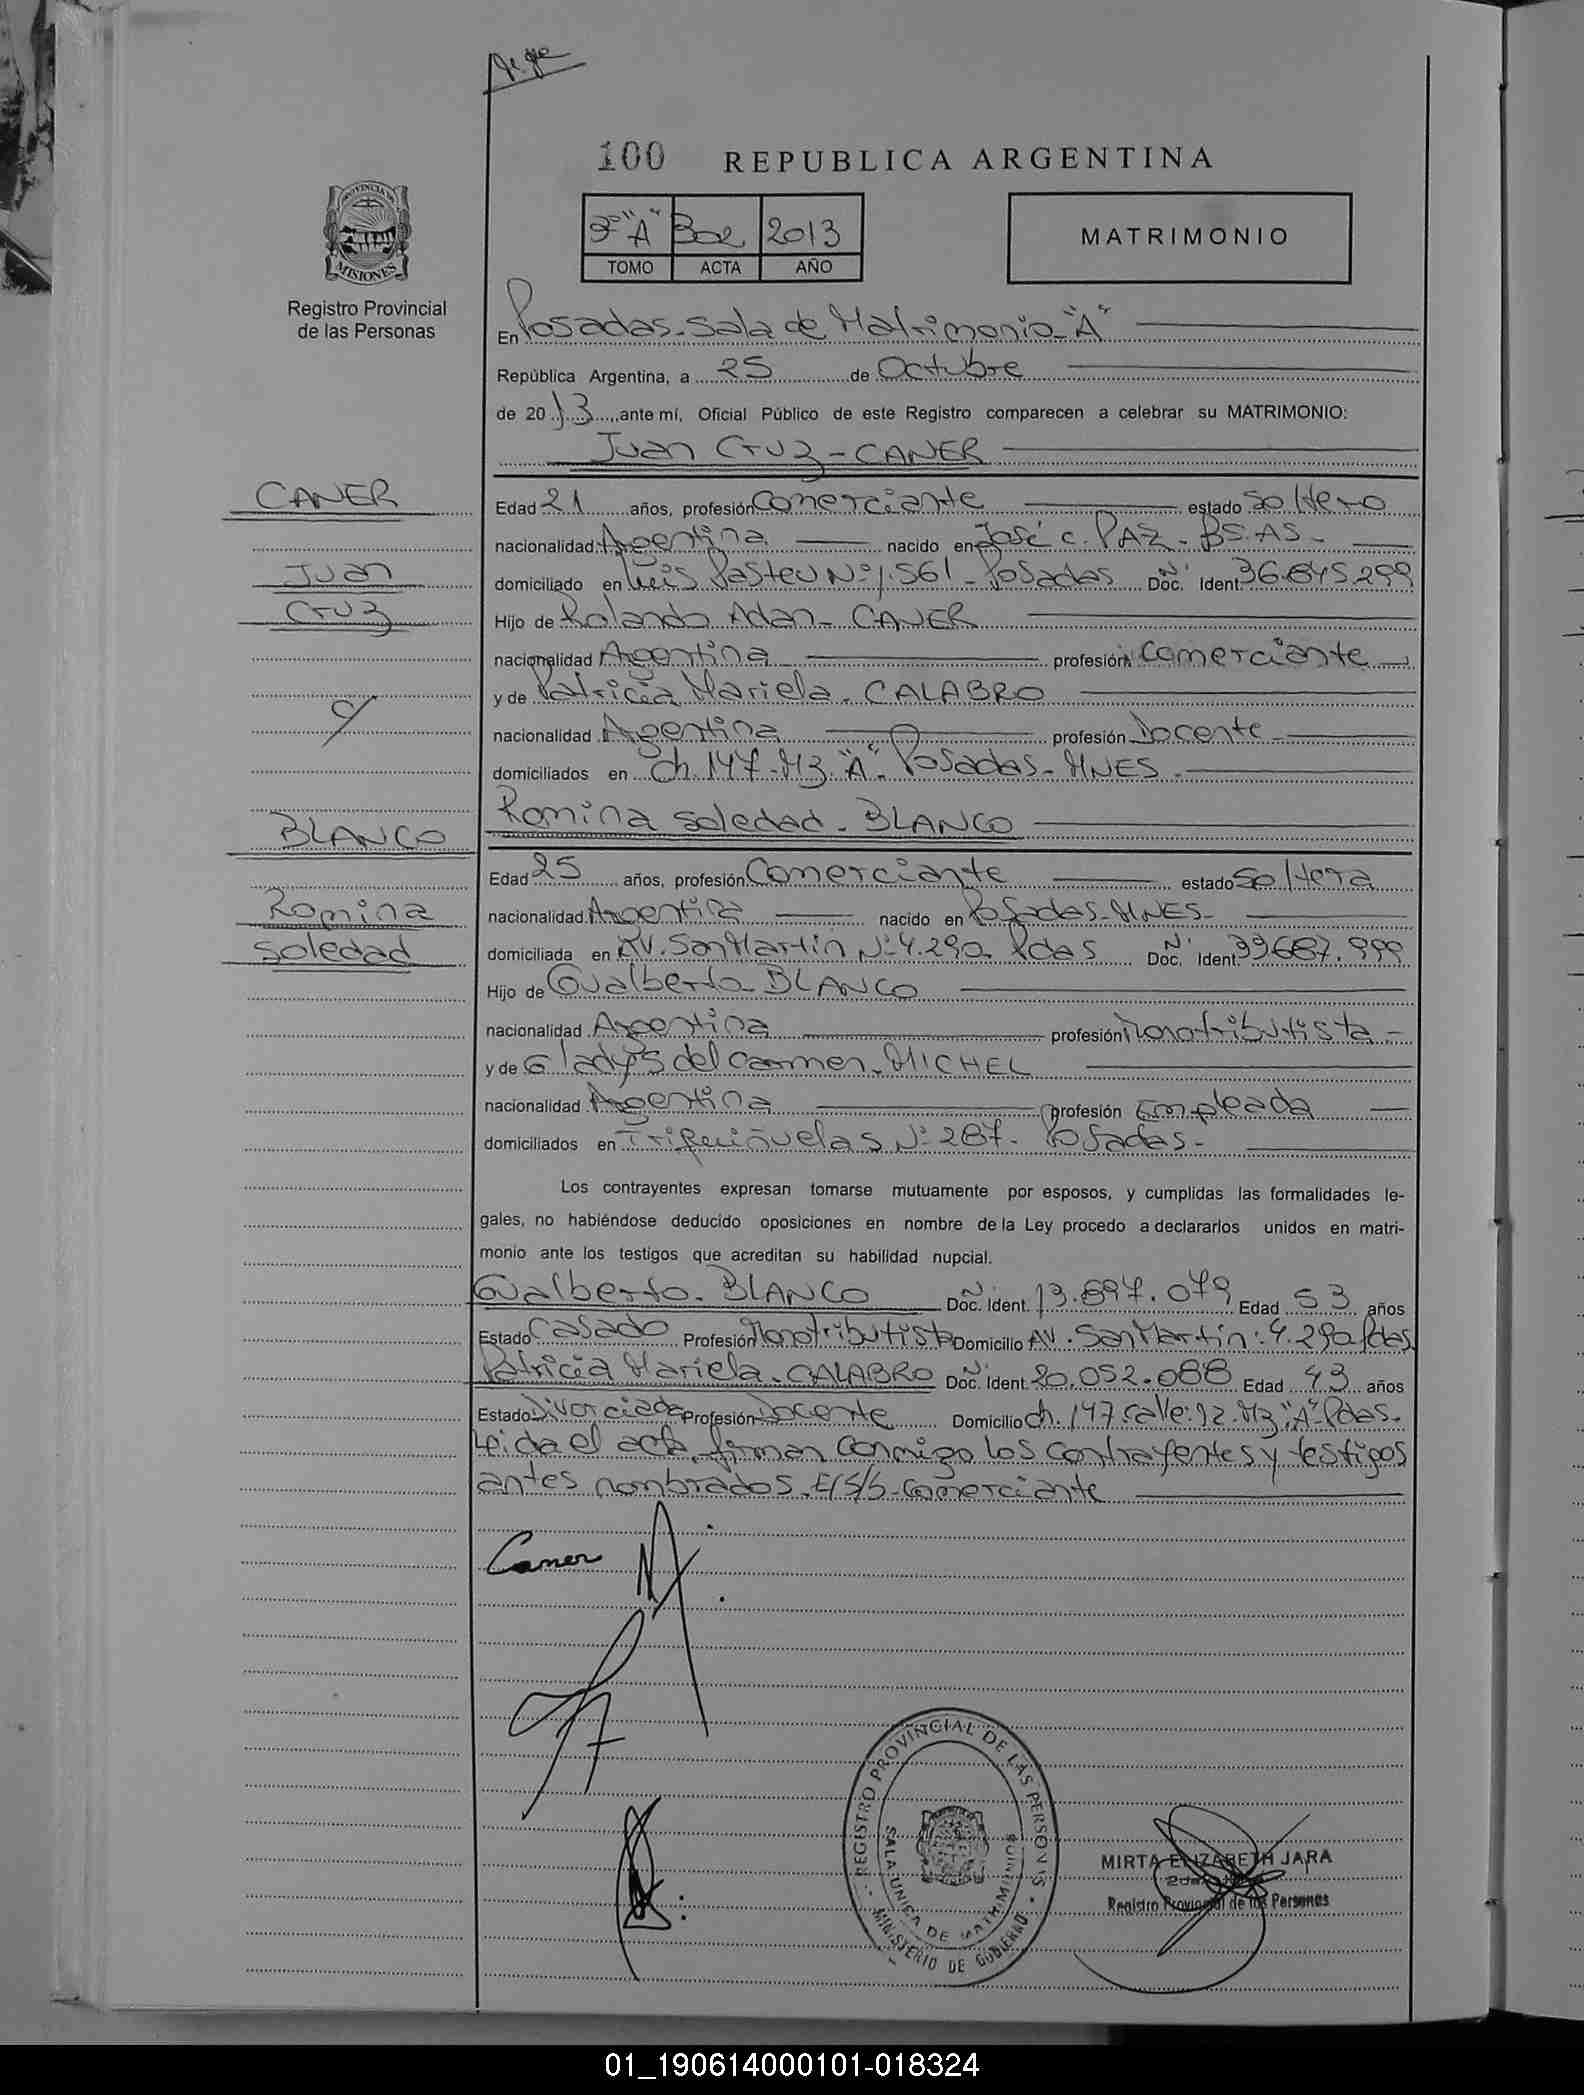 100 REPUBLICA ARGENTINA
PROVINCIA DE
MISIONES
Registro Provincial
de las Personas
"A" 302 2013
TOMO ACTA AÑO
MATRIMONIO
En Posadas-Sala de Matrimonio-"A"
República Argentina, a 25 de Octubre
de 2013, ante mí, Oficial Público de este Registro comparecen a celebrar su MATRIMONIO:
Juan Cruz-CANER
CANER
Juan
Cruz
c/
Edad 21 años, profesión Comerciante estado Soltero
nacionalidad Argentina nacido en José C. PAZ-BS.AS-
domiciliado en Luis Pasteu Nº1.561-Posadas Nº Doc. Ident. 36.845.299
Hijo de Rolando Adan-CANER
nacionalidad Argentina profesión Comerciante
y de Patricia Mariela-CALABRO
nacionalidad Argentina profesión Docente
domiciliados en Ch.147-M3."A"-Posadas-MNES-
Romina Soledad-BLANCO
BLANCO
Romina
Soledad
Edad 25 años, profesión Comerciante estado Soltera
nacionalidad Argentina nacido en Posadas-MNES-
domiciliada en AV. San Martin Nº4.290 Pdas Nº Doc. Ident. 33.687.999
Hijo de Gualberto-BLANCO
nacionalidad Argentina profesión Monotributista-
y de Gladys del Carmen-MICHEL
nacionalidad Argentina profesión Empleada
domiciliados en Nº287-Posadas-
Los contrayentes expresan tomarse mutuamente por esposos, y cumplidas las formalidades le-
gales, no habiéndose deducido oposiciones en nombre de la Ley procedo a declararlos unidos en matri-
monio ante los testigos que acreditan su habilidad nupcial.
Gualberto-BLANCO Nº Doc. Ident. 13.897.079 Edad 53 años
Estado Casado Profesión Monotributista Domicilio AV. San Martin:4.290 Pdas
Patricia Mariela-CALABRO Nº Doc. Ident. 20.052.088 Edad 43 años
Estado Divorciada Profesión Docente Domicilio Ch.147 Calle:12-M3"A"-Pdas-
Leida el acta, firman conmigo los contrayentes y testigos
antes nombrados-E/S/S-Comerciante
Caner
REGISTRO PROVINCIAL DE LAS PERSONAS
SALA UNICA DE MATRIMONIOS
MINISTERIO DE GOBIERNO
MIRTA ELIZABETH JARA
Registro Provincial de las Personas
01_190614000101-018324